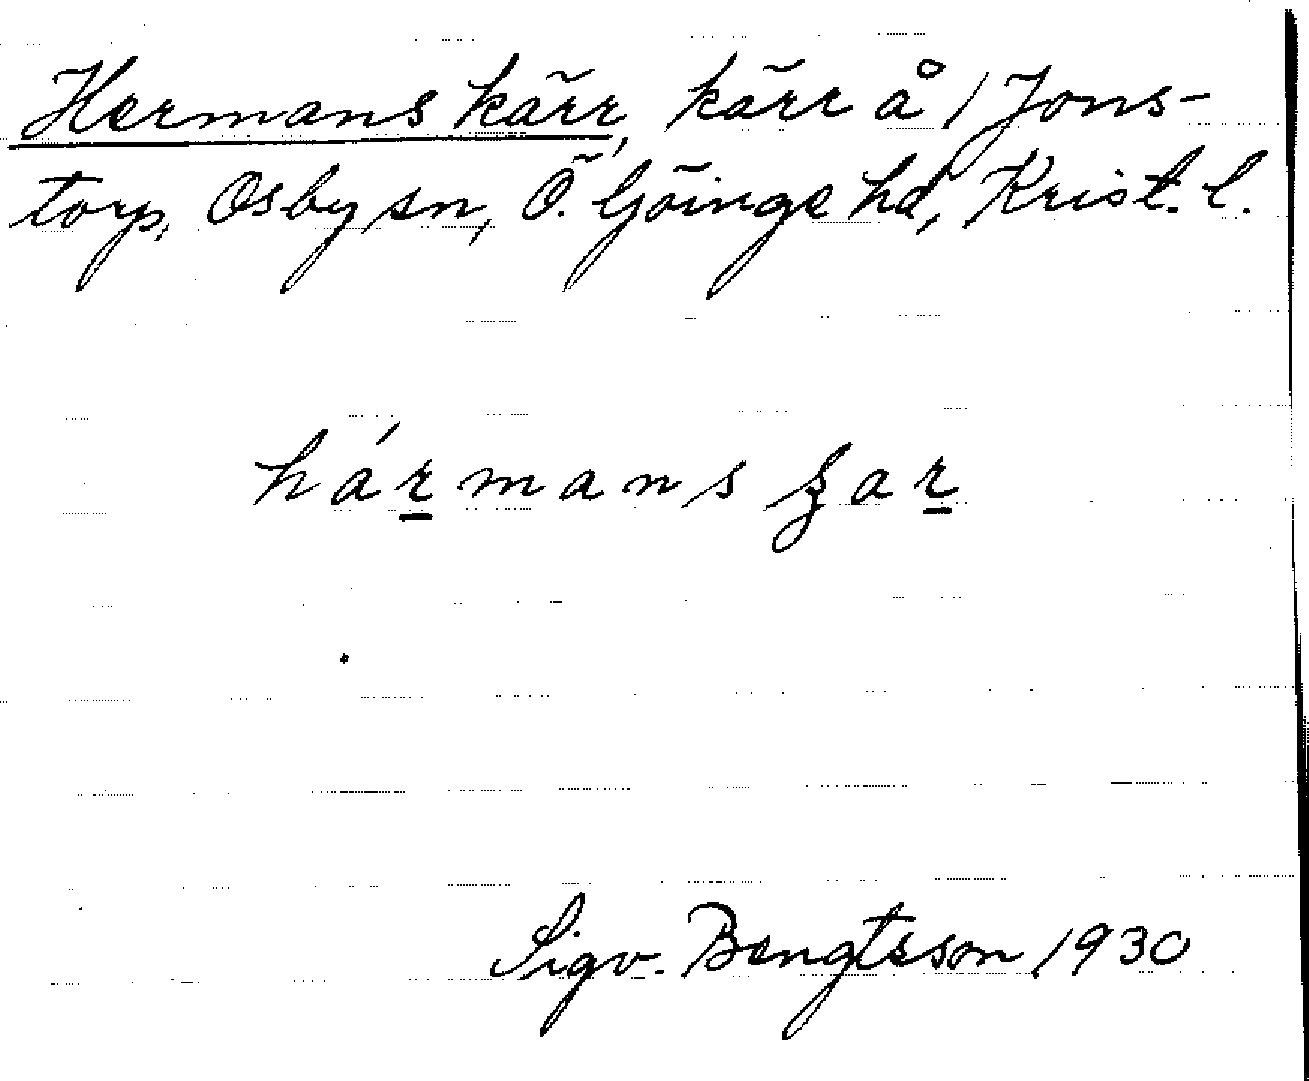 Hermans kärr, kärr å 1 Jons-
torp, Osby sn, Ö. Göinge hd, Krist. l.
hármans ʒar
Sigv. Bengtsson 1930